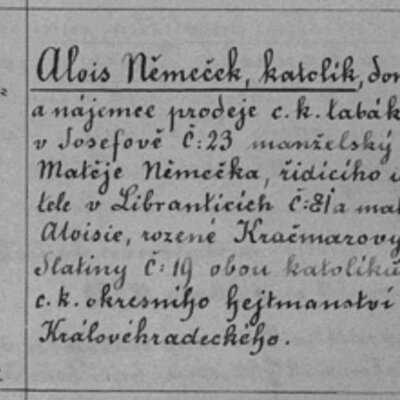 Alois Němeček, katolík, dom
a nájemce prodeje c. k. tabák
v Josefově č: 23 manželský
Matěje Němečka, řídícího u
tele v Libranticích č: 81 a mat
Aloisie, rozené Kračmarovy
Slatiny č: 19 obou katolíků
c. k. okresního hejtmanství
Královéhradeckého.